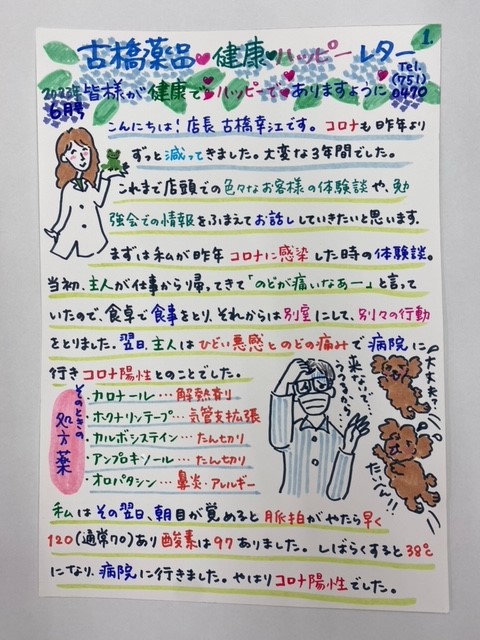 1.
古橋薬品♥健康♥ハッピーレター
Tel.
(751)
0470
2023年
6月号
皆様が健康で♥ハッピーで♥ありますように
こんにちは!店長 古橋幸江です。コロナも昨年より
ずっと減ってきました。大変な3年間でした。
これまで店頭での色々なお客様の体験談や、勉
強会での情報をふまえてお話ししていきたいと思います。
まずは私が昨年コロナに感染した時の体験談。
当初、主人が仕事から帰ってきて「のどが痛いなあー」と言って
いたので、食卓で食事をとり、それからは別室にして、別々の行動
をとりました。翌日、主人はひどい悪感とのどの痛みで病院に
行きコロナ陽性とのことでした。
そのときの
処方薬
・カロナール…解熱剤
・ホクナリンテープ…気管支拡張
・カルボシステイン…たん切り
・アンブロキソール…たん切り
・オロパタジン…鼻炎・アレルギー
来ないで
うつるから
大丈夫?
だいじょうぶ
私はその翌日、朝目が覚めると脈拍がやたら早く
120(通常70)あり酸素は97ありました。しばらくすると38℃
になり、病院に行きました。やはりコロナ陽性でした。